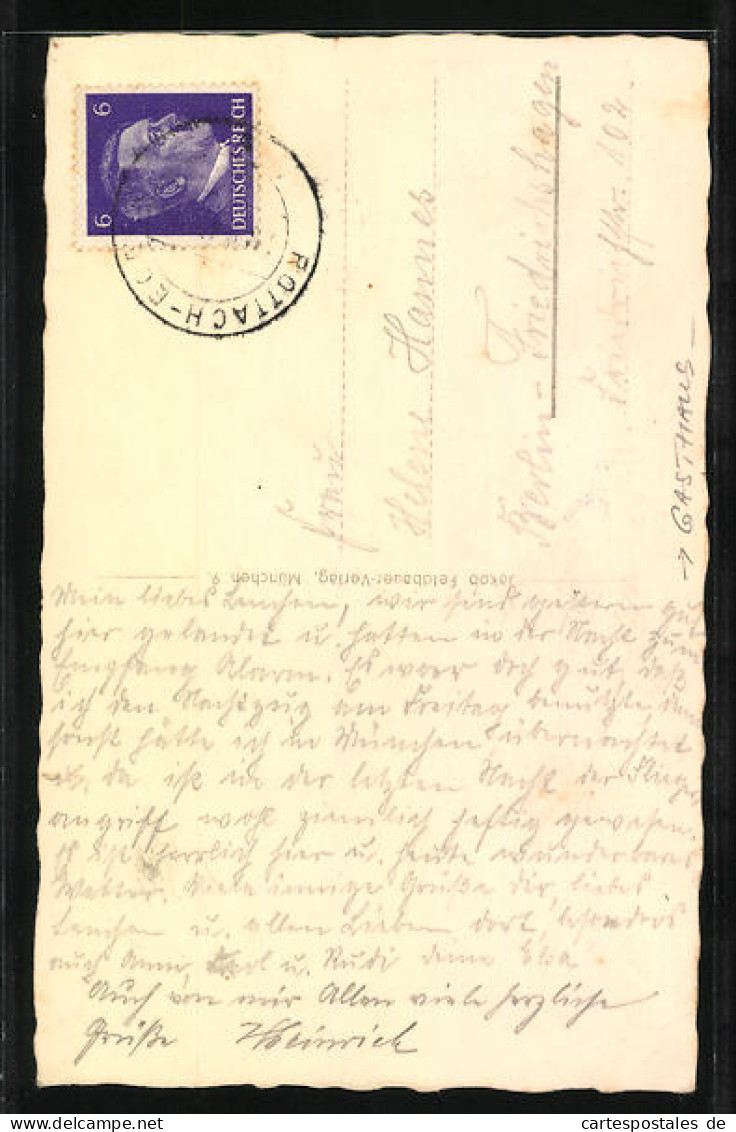 6 6
DEUTSCHES REICH
ROTTACH-E
Frau
Helene Hannes
Berlin-Friedrichshagen
102
→ GASTHAUS
Jakob Feldbauer-Verlag, München 9
Mein liebes Lenchen, wir sind gestern gut
hier gelandet u. hatten in der Nacht zum
Empfang Alarm. Es war doch gut, daß
ich den Nachtzug am Freitag benutzte, denn
sonst hätte ich in München übernachtet
u. da ist in der letzten Nacht der Flieger
angriff wohl ziemlich heftig gewesen.
Es ist herrlich hier u. heute wunderbares
Wetter. Viele innige Grüße dir, liebes
Lenchen u. allen Lieben dort, besonders
auch Anni, u. Rudi deine Elsa
Auch von mir Allen viele herzliche
Grüße Heinrich
www.cartespostales.de
cartespostales.de